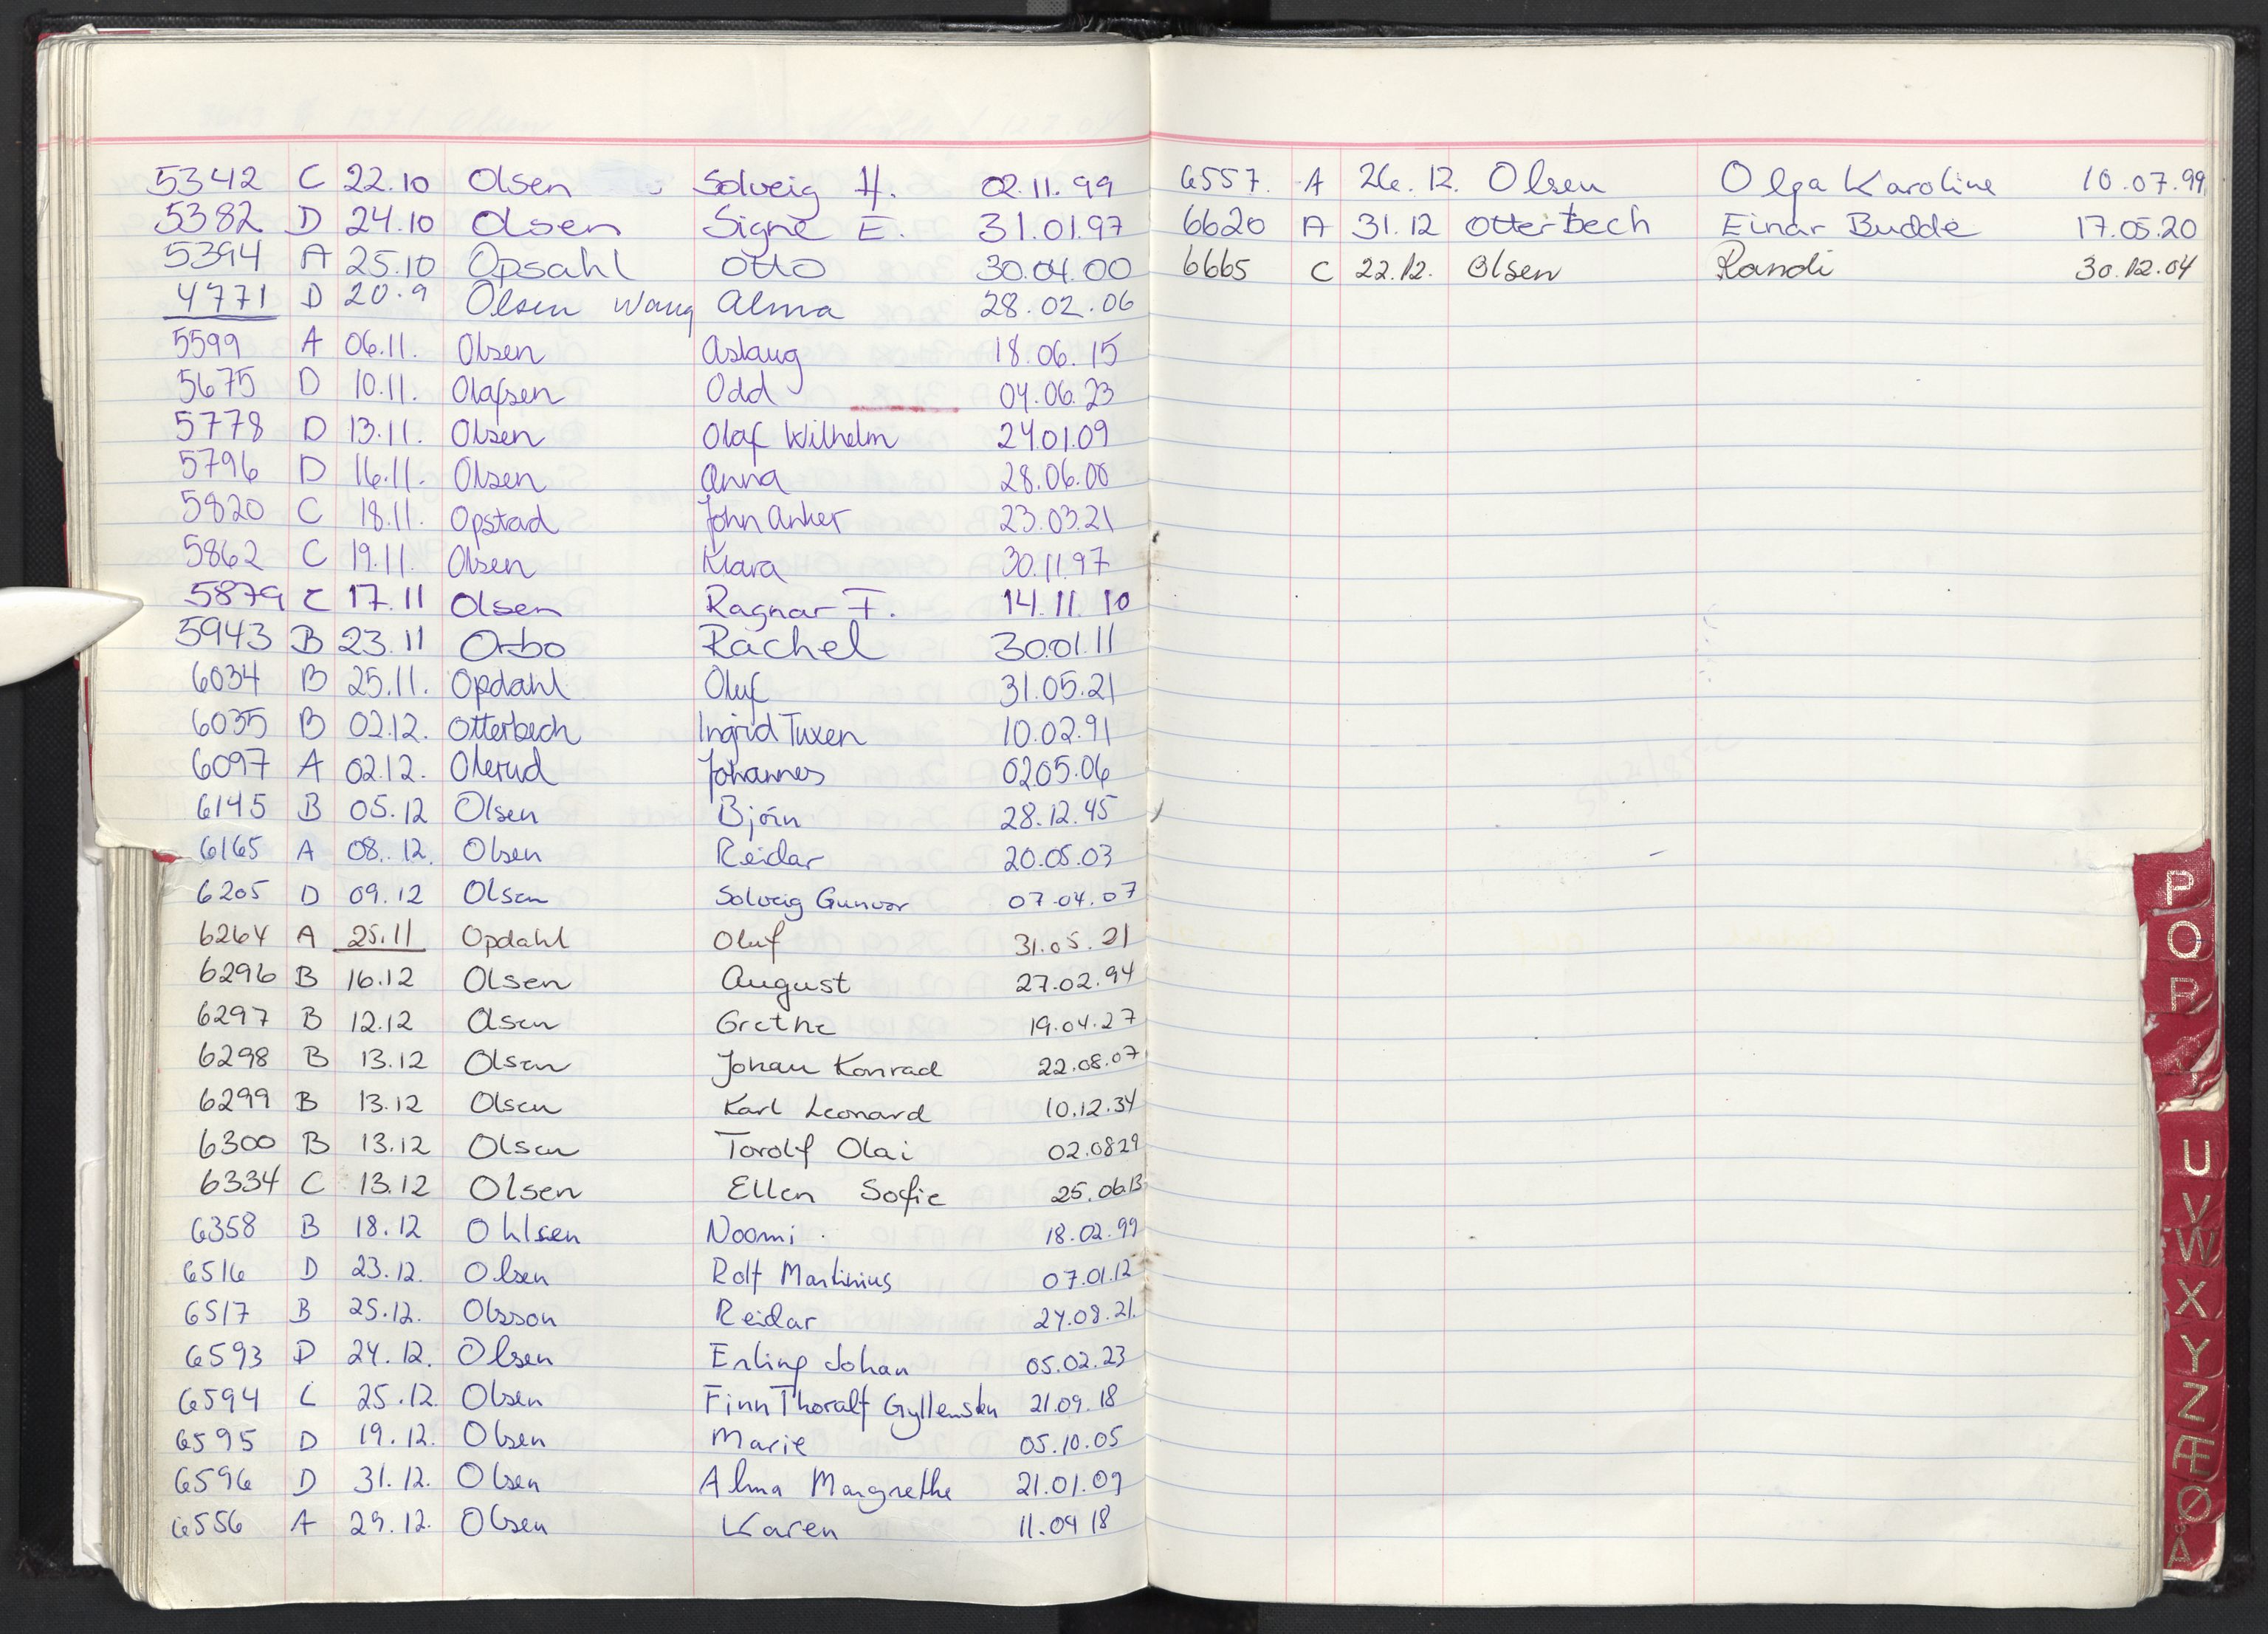 5342 C 22.10 Olsen Solveig H. 02.11.99
5382 D 24.10 Olsen Signe E. 31.01.97
5394 A 25.10 Opsahl Otto 30.04.00
4771 D 20.9 Olsen Wang Alma 28.02.06
5599 A 06.11. Olsen Aslaug 18.06.15
5675 D 10.11. Olafsen Odd 04.06.23
5778 D 13.11. Olsen Olaf Wilhelm 24.01.09
5796 D 16.11. Olsen Anna 28.06.00
5820 C 18.11. Opstad John Anker 23.03.21
5862 C 19.11. Olsen Klara 30.11.97
5879 C 17.11 Olsen Ragnar F. 14.11.10
5943 B 23.11 Orbo Rachel 30.01.11
6034 B 25.11. Opdahl Oluf 31.05.21
6035 B 02.12. Otterbech Ingrid Tuxen 10.02.91
6097 A 02.12. Olerud Johannes 02.05.06
6145 B 05.12 Olsen Bjørn 28.12.45
6165 A 08.12. Olsen Reidar 20.05.03
6205 D 09.12 Olsen Solveig Gunvor 07.04.07
6264 A 25.11 Opdahl Oluf 31.05.21
6296 B 16.12 Olsen August 27.02.94
6297 B 12.12 Olsen Grethe 19.04.27
6298 B 13.12 Olsen Johan Konrad 22.08.07
6299 B 13.12 Olsen Karl Leonard 10.12.34
6300 B 13.12 Olsen Torolf Olai 02.0829
6334 C 13.12 Olsen Ellen Sofie 25.06.13
6358 B 18.12 Ohlsen Noomi 18.02.99
6516 D 23.12. Olsen Rolf Martinius 07.01.12
6517 B 25.12. Olsson Reidar 24.08.21.
6593 D 24.12. Olsen Erling Johan 05.02.23
6594 C 25.12. Olsen Finn Thoralf Gyllensten 21.09.18
6595 D 19.12. Olsen Marie 05.10.05
6596 D 31.12. Olsen Alma Margrethe 21.01.09
6556 A 29.12. Olsen Karen 11.09 18
6557. A 26.12. Olsen Olga Karoline 10.07.99
6620 A 31.12 Otterbech Einar Budde 17.05.20
6665 C 22.12. Olsen Randi 30.12.04
P
Q
R
U
V
W
X
Y
Z
Æ
Ø
Å